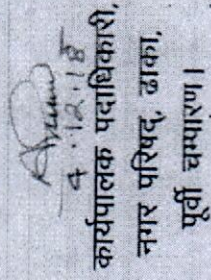 4.12.18
कार्यपालक पदाधिकारी,
नगर परिषद्, ढाका,
पूर्वी चम्पारण।